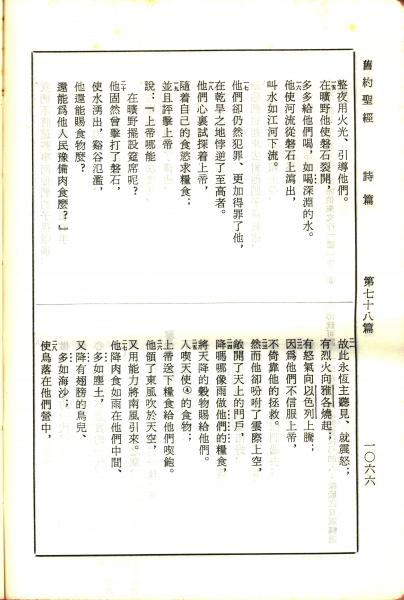 舊約聖經　詩篇　第七十八篇　一〇六六
整夜用火光、引導他們。
在曠野他使磐石裂開，
多多給他們喝，如喝深淵的水。
他使河流從磐石上瀉出，
叫水如江河下流。
他們卻仍然犯罪、更加得罪了他，
在乾旱之地悖逆了至高者。
他們心裏試探着上帝，
隨着自己的食慾求糧食；
並且評擊上帝
說：『上帝哪能
在曠野擺設筵席呢？
他固然曾擊打了磐石，
使水湧出，谿谷氾濫，
他還能賜食物麼？
還能爲他人民豫備肉食麼？』
故此永恆主聽見、就震怒；
有烈火向雅各燒起；
有怒氣向以色列上騰；
因爲他們不信服上帝，
不倚靠他的拯救。
然而他卻吩咐了雲際上空，
敞開了天上的門戶，
降嗎哪像雨做他們的糧食，
將天降的穀物賜給他們。
人喫天使④的食物；
上帝送下糧食給他們喫飽。
他領了東風吹於天空，
又用能力將南風引來。
他降肉食如雨在他們中間、
多如塵土，
又降有翅膀的鳥兒、
多如海沙；
使鳥落在他們營中，